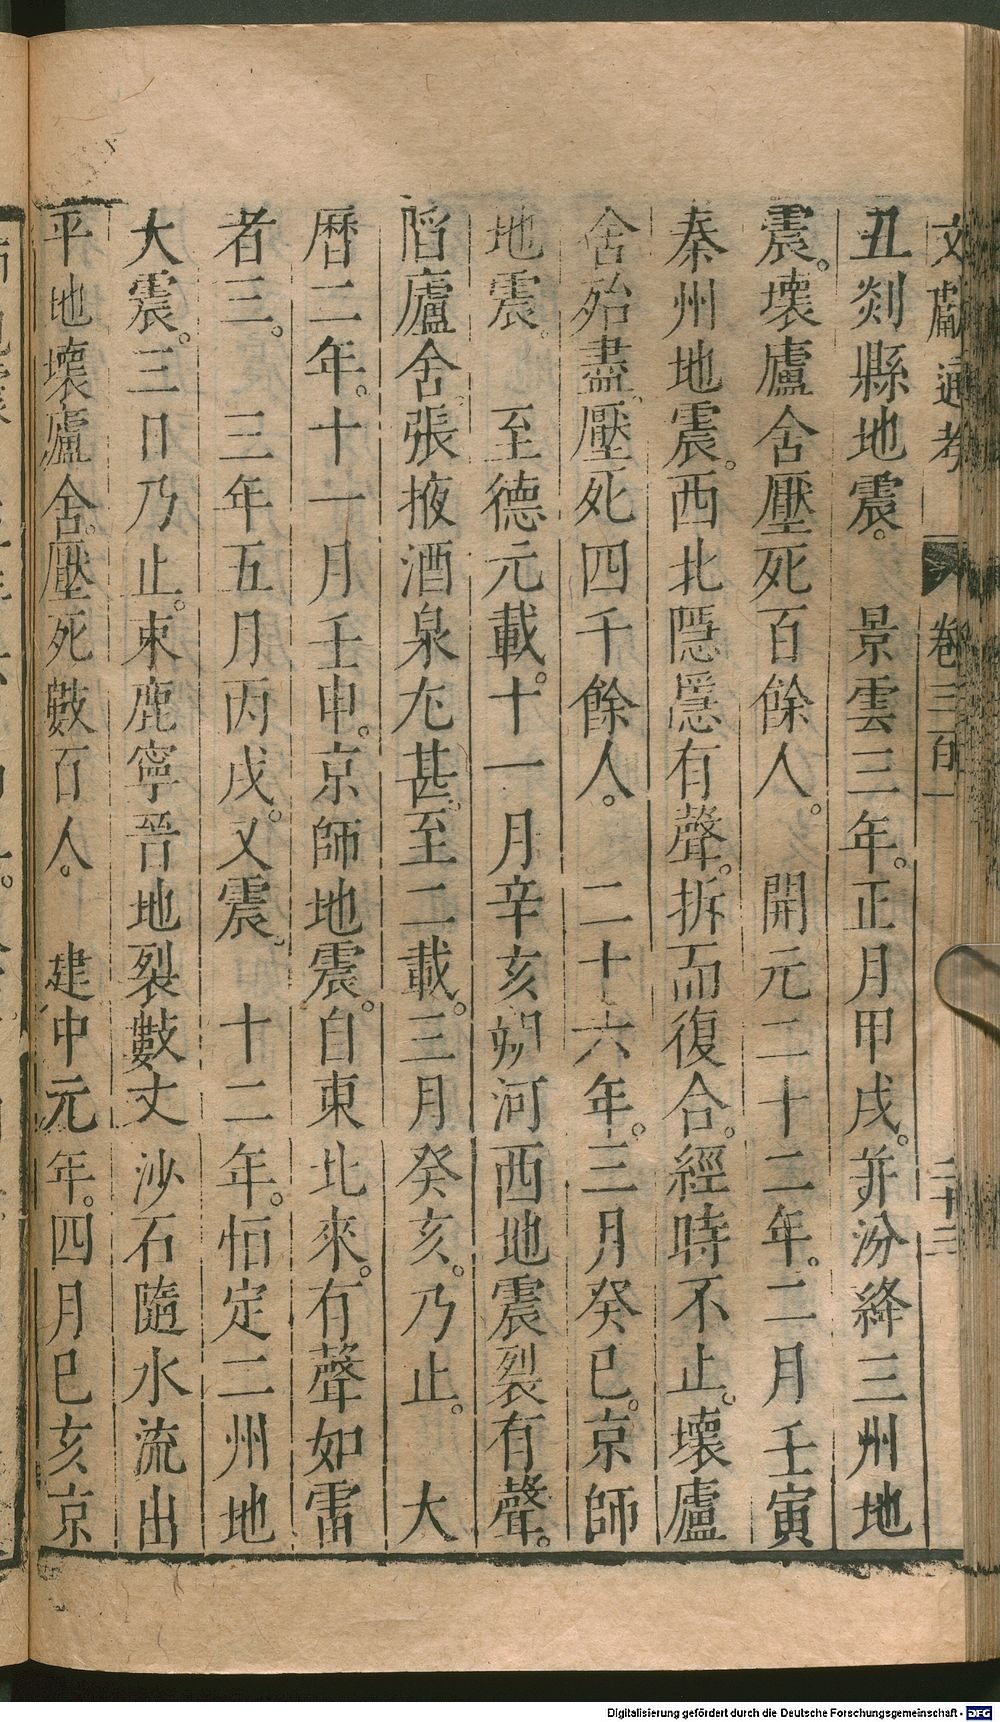 文獻通考 卷三百一 二十三
丑剡縣地震。 景雲三年。正月甲戌。并汾絳三州地
震。壞廬舍壓死百餘人。 開元二十二年。二月壬寅
秦州地震。西北隱隱有聲。拆而復合。經時不止。壞廬
舍殆盡。壓死四千餘人。 二十六年。三月癸巳。京師
地震。 至德元載。十一月辛亥朔河西地震裂有聲。
陷廬舍。張掖酒泉尤甚。至二載。三月癸亥。乃止。 大
曆二年。十一月壬申。京師地震。自東北來。有聲如雷
者三。 三年五月丙戌。又震。 十二年。恒定二州地
大震。三日乃止。束鹿寧晉地裂數丈沙石隨水流出
平地壞廬舍。壓死數百人。 建中元年。四月巳亥京
Digitalisierung gefördert durch die Deutsche Forschungsgemeinschaft - DFG